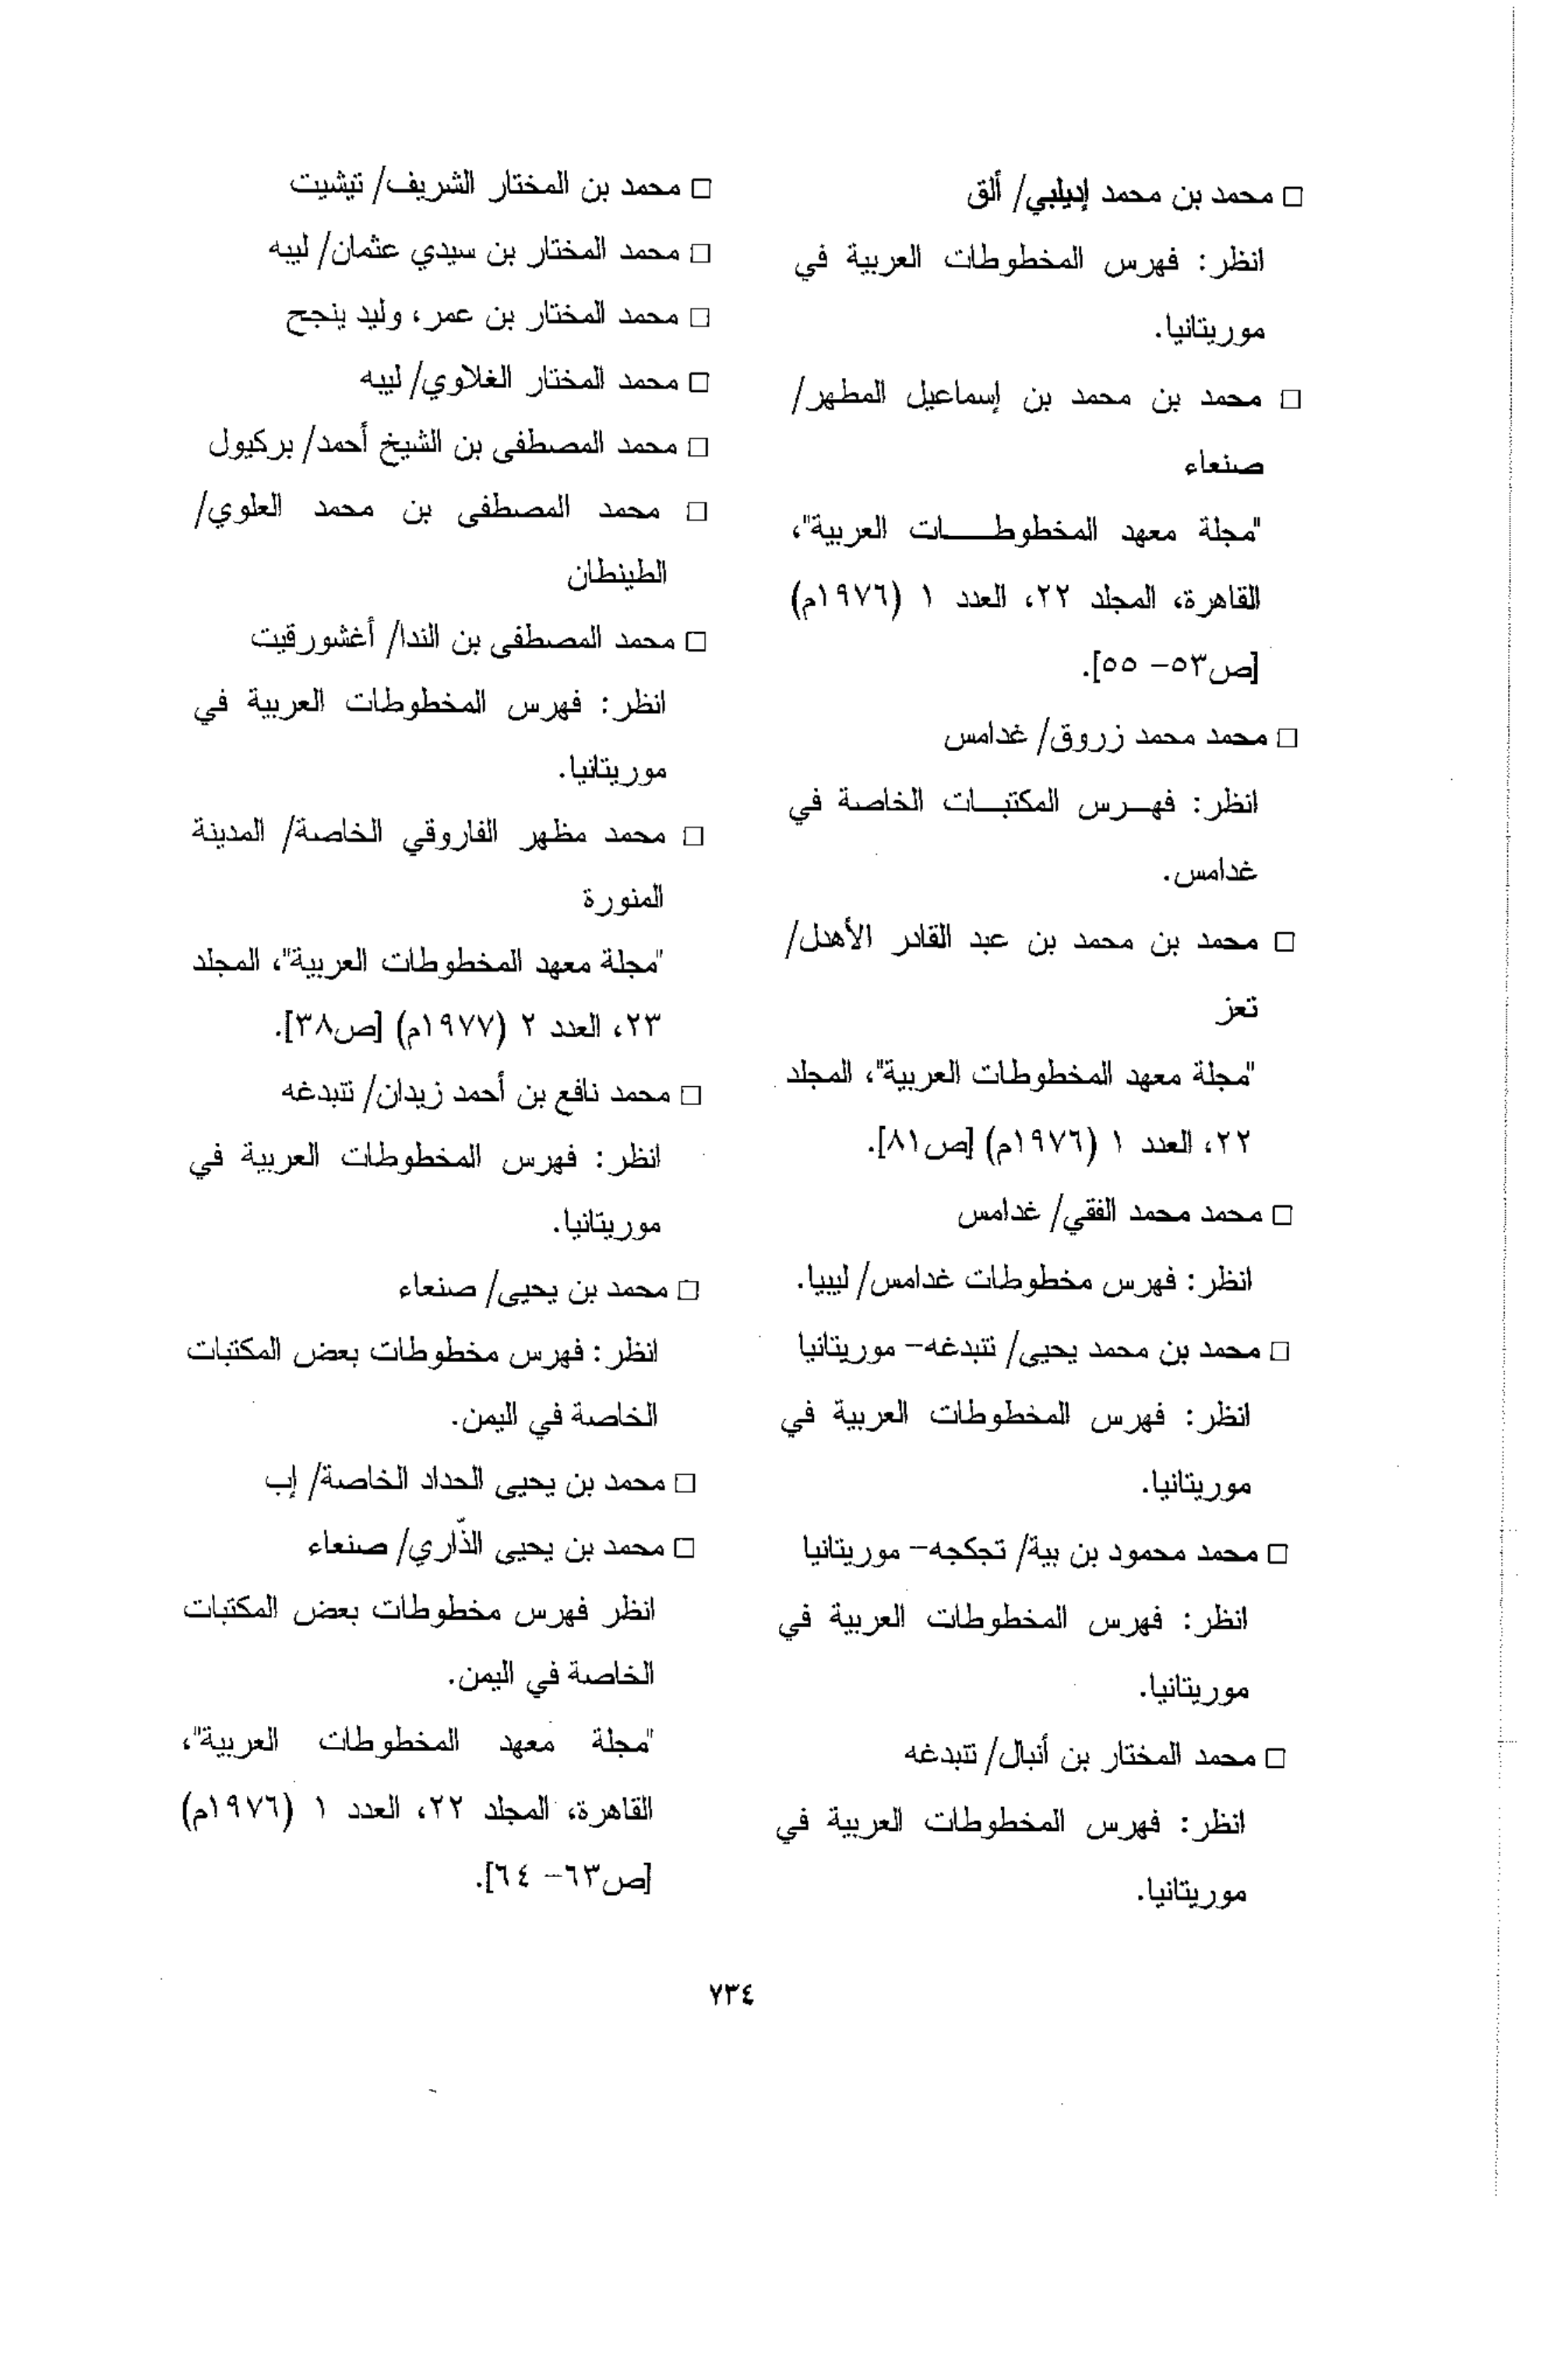 □ محمد بن محمد إديلبي/ ألق
انظر: فهرس المخطوطات العربية في
موريتانيا.
□ محمد بن محمد بن إسماعيل المطهر/
صنعاء
"مجلة معهد المخطوطات العربية"،
القاهرة، المجلد ٢٢، العدد ١ (١٩٧٦م)
[ص٥٣- ٥٥].
□ محمد محمد زروق/ غدامس
انظر: فهرس المكتبات الخاصة في
غدامس.
□ محمد بن محمد بن عبد القادر الأهدل/
تعز
"مجلة معهد المخطوطات العربية"، المجلد
٢٢، العدد ١ (١٩٧٦م) [ص٨١].
□ محمد محمد الفقي/ غدامس
انظر: فهرس مخطوطات غدامس/ ليبيا.
□ محمد بن محمد يحيى/ تنبدغه- موريتانيا
انظر: فهرس المخطوطات العربية في
موريتانيا.
□ محمد محمود بن بية/ تجكجه- موريتانيا
انظر: فهرس المخطوطات العربية في
موريتانيا.
□ محمد المختار بن أنبال/ تنبدغه
انظر: فهرس المخطوطات العربية في
موريتانيا.
□ محمد بن المختار الشريف/ تيشيت
□ محمد المختار بن سيدي عثمان/ ليبه
□ محمد المختار بن عمر، وليد ينجح
□ محمد المختار الغلاوي/ ليبه
□ محمد المصطفى بن الشيخ أحمد/ بركيول
□ محمد المصطفى بن محمد العلوي/
الطينطان
□ محمد المصطفى بن الندا/ أغشورقيت
انظر: فهرس المخطوطات العربية في
موريتانيا.
□ محمد مظهر الفاروقي الخاصة/ المدينة
المنورة
"مجلة معهد المخطوطات العربية"، المجلد
٢٣، العدد ٢ (١٩٧٧م) [ص٣٨].
□ محمد نافع بن أحمد زيدان/ تنبدغه
انظر: فهرس المخطوطات العربية في
موريتانيا.
□ محمد بن يحيى/ صنعاء
انظر: فهرس مخطوطات بعض المكتبات
الخاصة في اليمن.
□ محمد بن يحيى الحداد الخاصة/ إب
□ محمد بن يحيى الذّاري/ صنعاء
انظر فهرس مخطوطات بعض المكتبات
الخاصة في اليمن.
"مجلة معهد المخطوطات العربية"،
القاهرة، المجلد ٢٢، العدد ١ (١٩٧٦م)
[ص٦٣- ٦٤].
٧٣٤